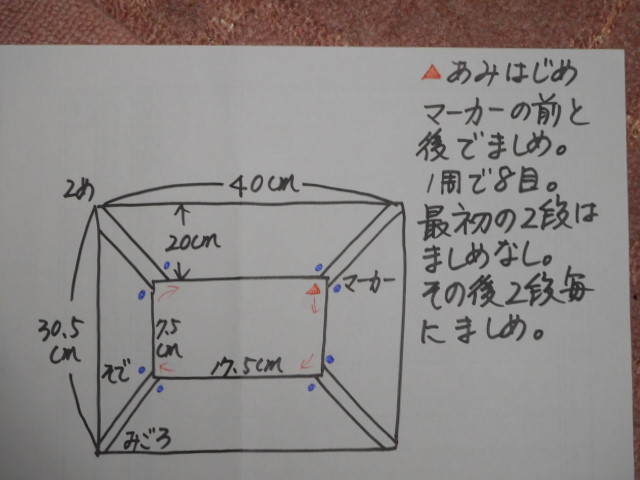 ▲あみはじめ
マーカーの前と
後でましめ。
1周で8目。
最初の2段は
ましめなし。
その後2段毎
にましめ。
2め
40cm
20cm
マーカー
30.5
cm
7.5
cm
そで
17.5cm
みごろ